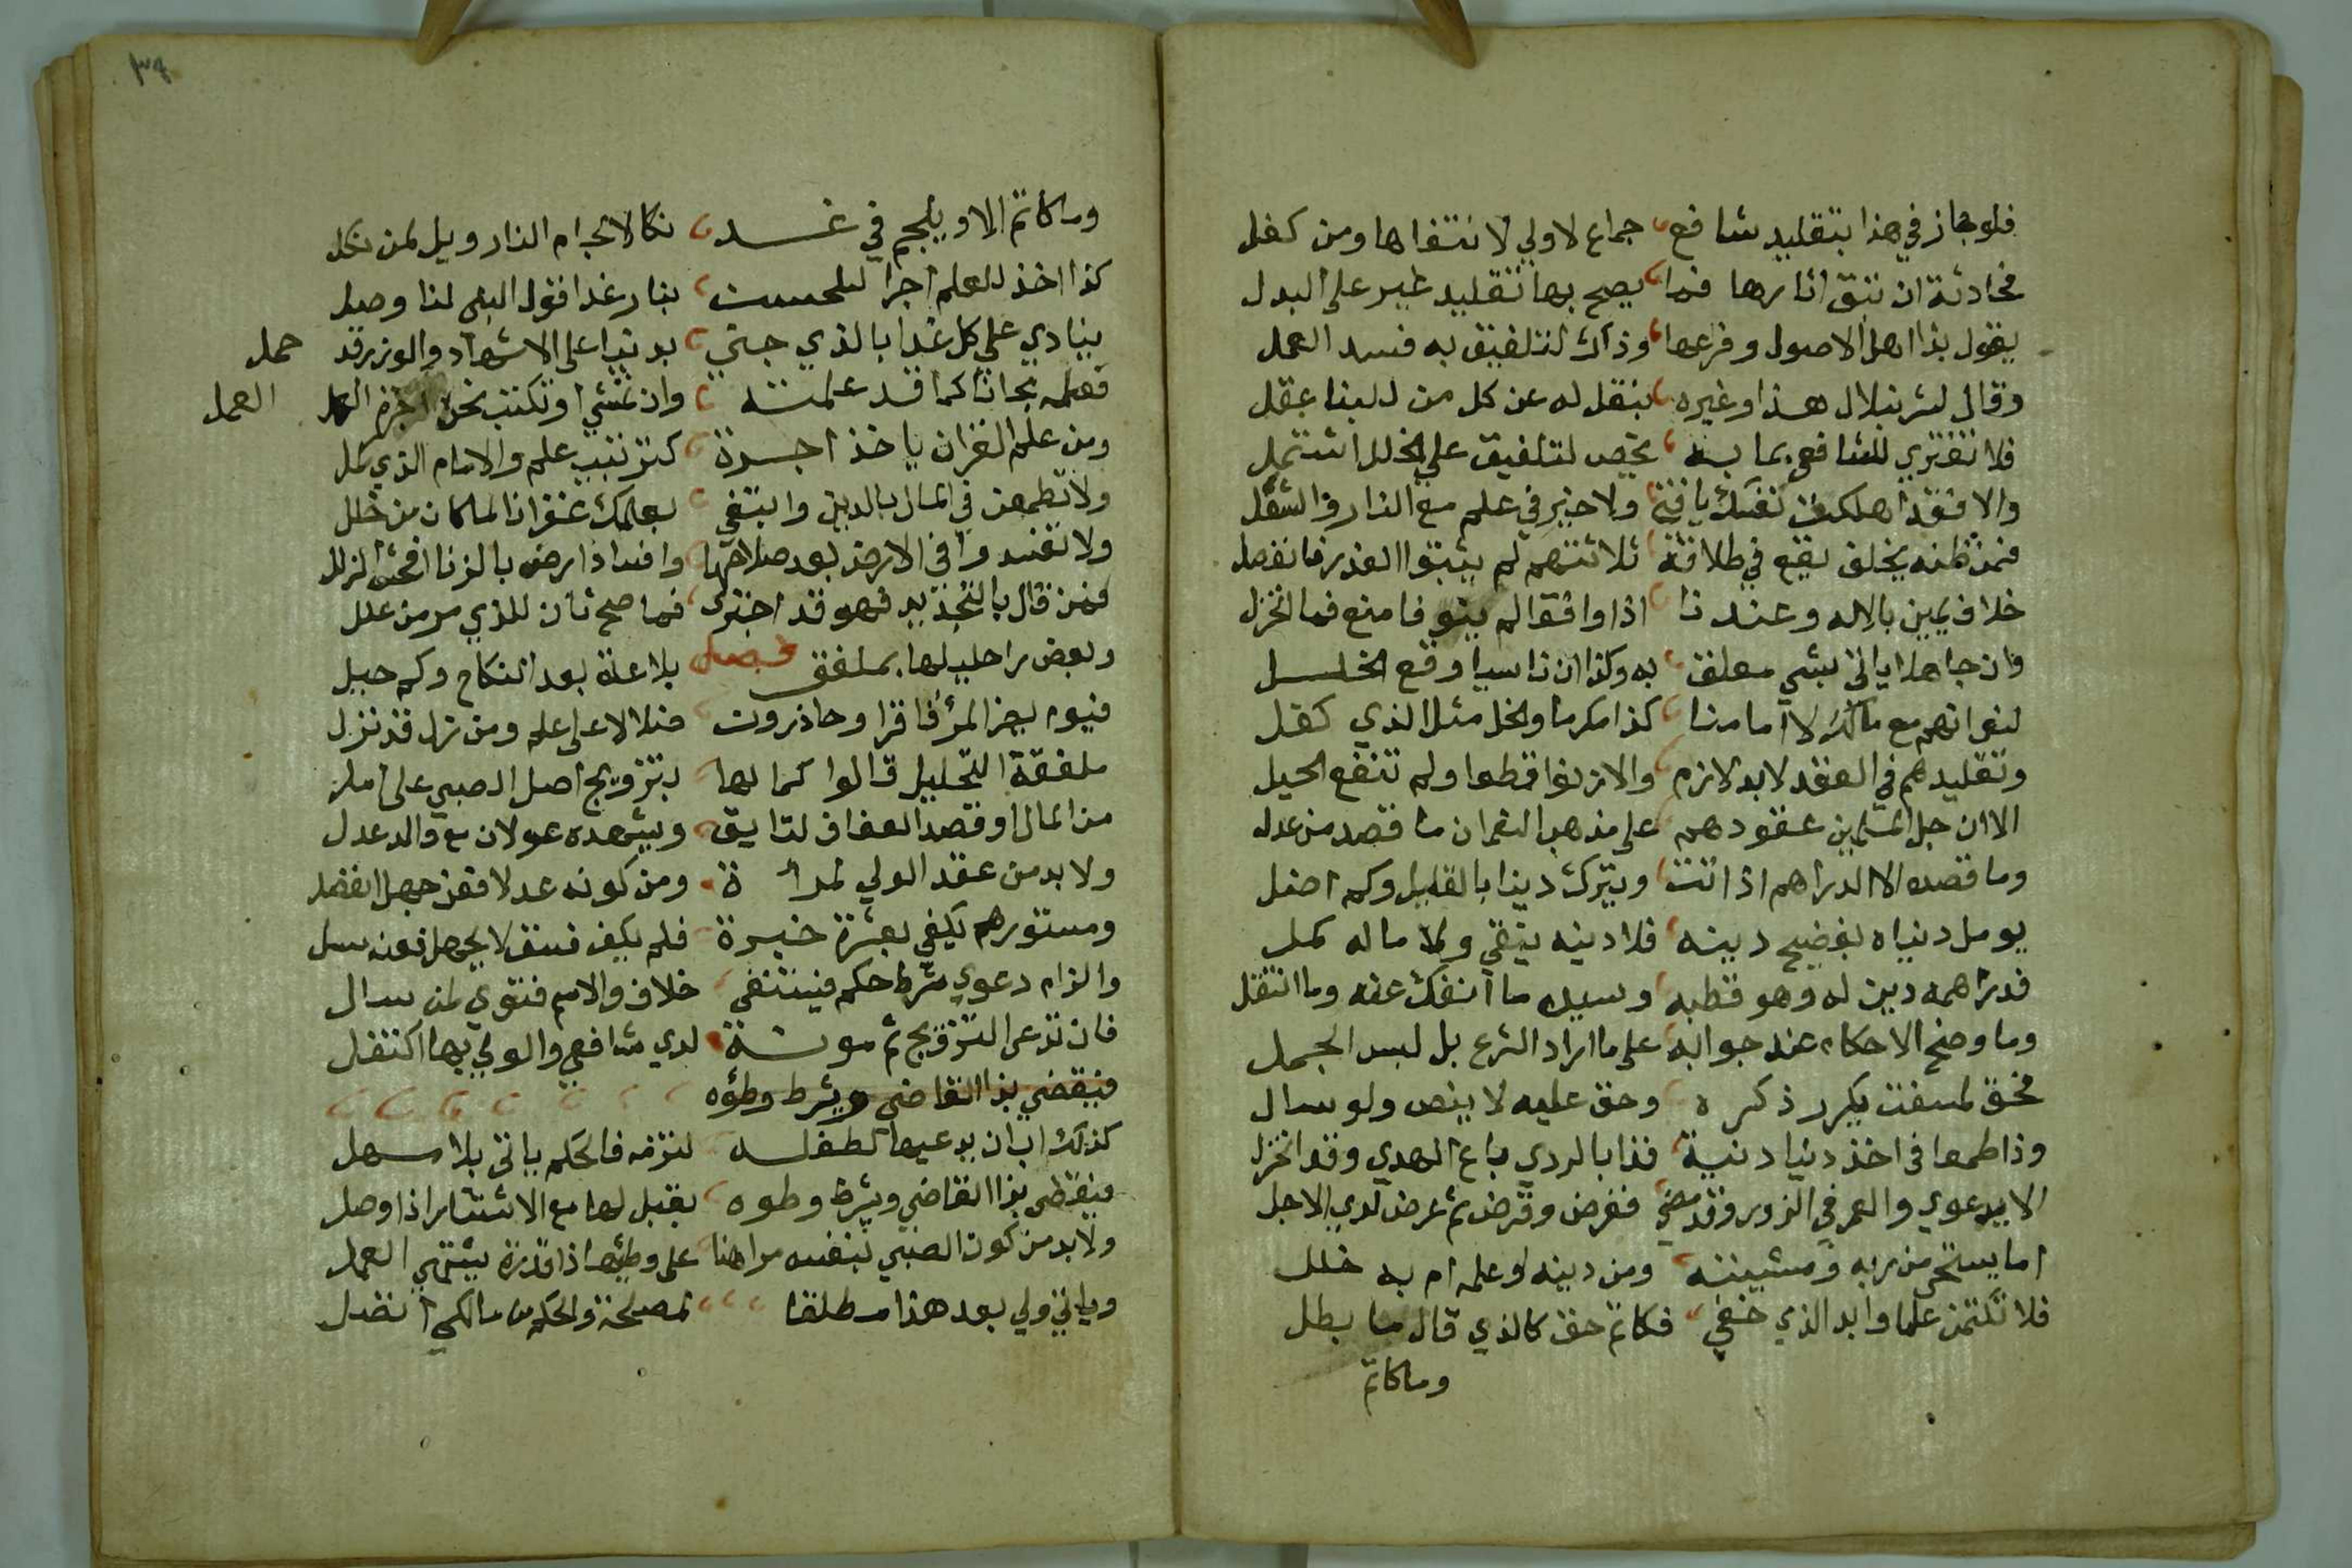 فلو جاز في هذا بتقليد شافع جماع لاولي لانتفاها ومن كفل
فحادثة ان تبق اثارها فما يصح بها تقليد غير على البدل
يقول بذا اهل الاصول وفرعها وذاك لتلفيق به فسد العمل
وقال لشرنبلال هذا وغيره بنقل له عن كل من للبنا عقل
فلا تفتري للشافعي بما به يخص لتلفيق على الخلل اشتمل
والا فقد اهلكت نفسك يا فتى ولا خير في علم مع النار والشعل
فمن ظنه يخلق يقع في طلاقه ثلاثتهم لم يثبتوا العذر فانفصل
خلاف يمين بالاله وعندنا اذا وافقوا لم ينو فامنع فما انخزل
وان جاهلا ياتي بشي معلق به وكذا ان ناسيا وقع الخلل
مع مالك لا امامنا كذا مكرها والخل مثل الذي كفل
وتقليدهم في العقد لابد لازم والا زنوا قطعا ولم تنفع الحيل
الا ان جل المسلمين عقودهم على مذهب النعمان ما قصد من عدل
وما قصده الا الدراهم اذا اتت ويترك دينا بالقليل وكم اضل
يومل دنياه بفضيح دينه فلا دينه يبقى ولا ماله كمل
فدراهمه دين له وهو قطبه وسيده ما انفك عنه وما انتقل
وما وضح الاحكام عند جوابه على ما اراد الشرع بل لبس الجمل
فحق لمستفت يكرر ذكره وحق عليه لا ينص ولو سال
وذا طمعا في اخذ دنيا دنية فذا بالردي باع الهدي وقد انخزل
الا يدعوي والعمر في الزور وقد مضى ففرض وقرض ثم عرض لدي الاجل
اما يستحي من ربه ومشيبته ومن دينه او علمه ام به خلل
فلا تكتمن علما وابد الذي خفي فكاتم حق كالذي قال ما بطل
وما كاتم
٣٤
وما كاتم الا ويلجم في غد نكالا لجام النار ويل لمن نكل
كذا اخذ للعلم اجرا بنار غدا فقول النبي لنا وصل
ينادي على كل غدا بالذي جنى بدنيا على الاشهاد والوزر قد حمل
فعلمه مجانا كما قد علمته وان تفتي او تكتب فخذ اجرة العمل
ومن علم القران ياخذ اجرة كترتيب علم والامام الذي كمل
ولا تطمعن في المال بالدين وابتغي بعلمك غفرانا لما كان من خلل
ولا تفسدوا في الارض بعد صلاحها وافساد ارض بالزنا افحش الزلل
فمن قال بالتجديد فهو قد اجترى فما صح ثان للذي مر من علل
وبعض راحلها بملفق فحصل بلا عدة بعد النكاح وكم حبل
ملفقة التحليل قالوا كما لها بتزويج اصل الصبي على امل
من المال او قصد العفاف لتايق ويشهده عدلان مع والد عدل
ولا بد من عقد الولي لمراة ومن كونه عدلا فقد جهل انفصل
ومستورهم يكفي بعشرة خبرة فلم يكف فسق لا يجهل فعنه سل
والزام دعوى شرط حكم فينتفي خلاف والاسم فتوى لمن سال
فان تدعي التزويج ثم مونة لدي شافعي والولي بها اكتفل
فيقضي بذا القاضي ويشرط وطؤه
كذلك اب ان يدعيها لطفله لتزمه فالحكم ياتي بلا سهل
فيقضي بذا القاضي ويشرط وطوه بقبل لها مع الانتشار اذا وصل
ولا بد من كون الصبي بنفسه مراهقا على وطئها ذا قدرة يشتهي العمل
وياتي ولي بعد هذا مطلقا لمصلحة والحكم من مالكي انفصل